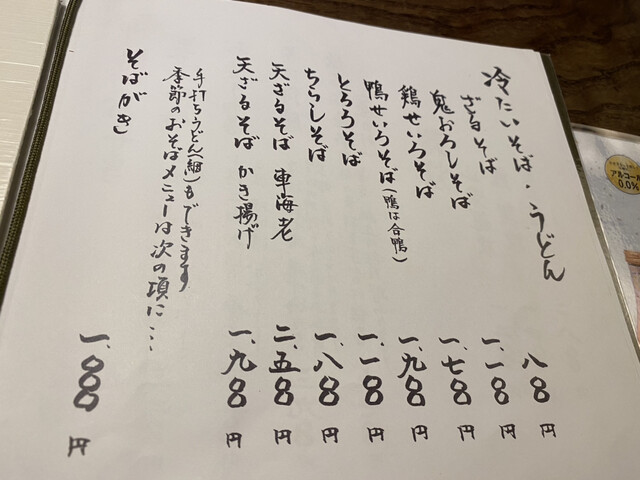 冷たいそば・うどん
ざるそば 八〇〇円
鬼おろしそば 一、一〇〇円
鶏せいろそば 一、七〇〇円
鴨せいろそば(鴨は合鴨) 一、九〇〇円
とろろそば 一、一〇〇円
ちらしそば 一、八〇〇円
天ざるそば 車海老 二、五〇〇円
天ざるそば かき揚げ 一、九〇〇円
手打うどん(細)もできます
季節のおそばメニューは次の項に…
そばがき 一、〇〇〇円
アルコール
0.0%